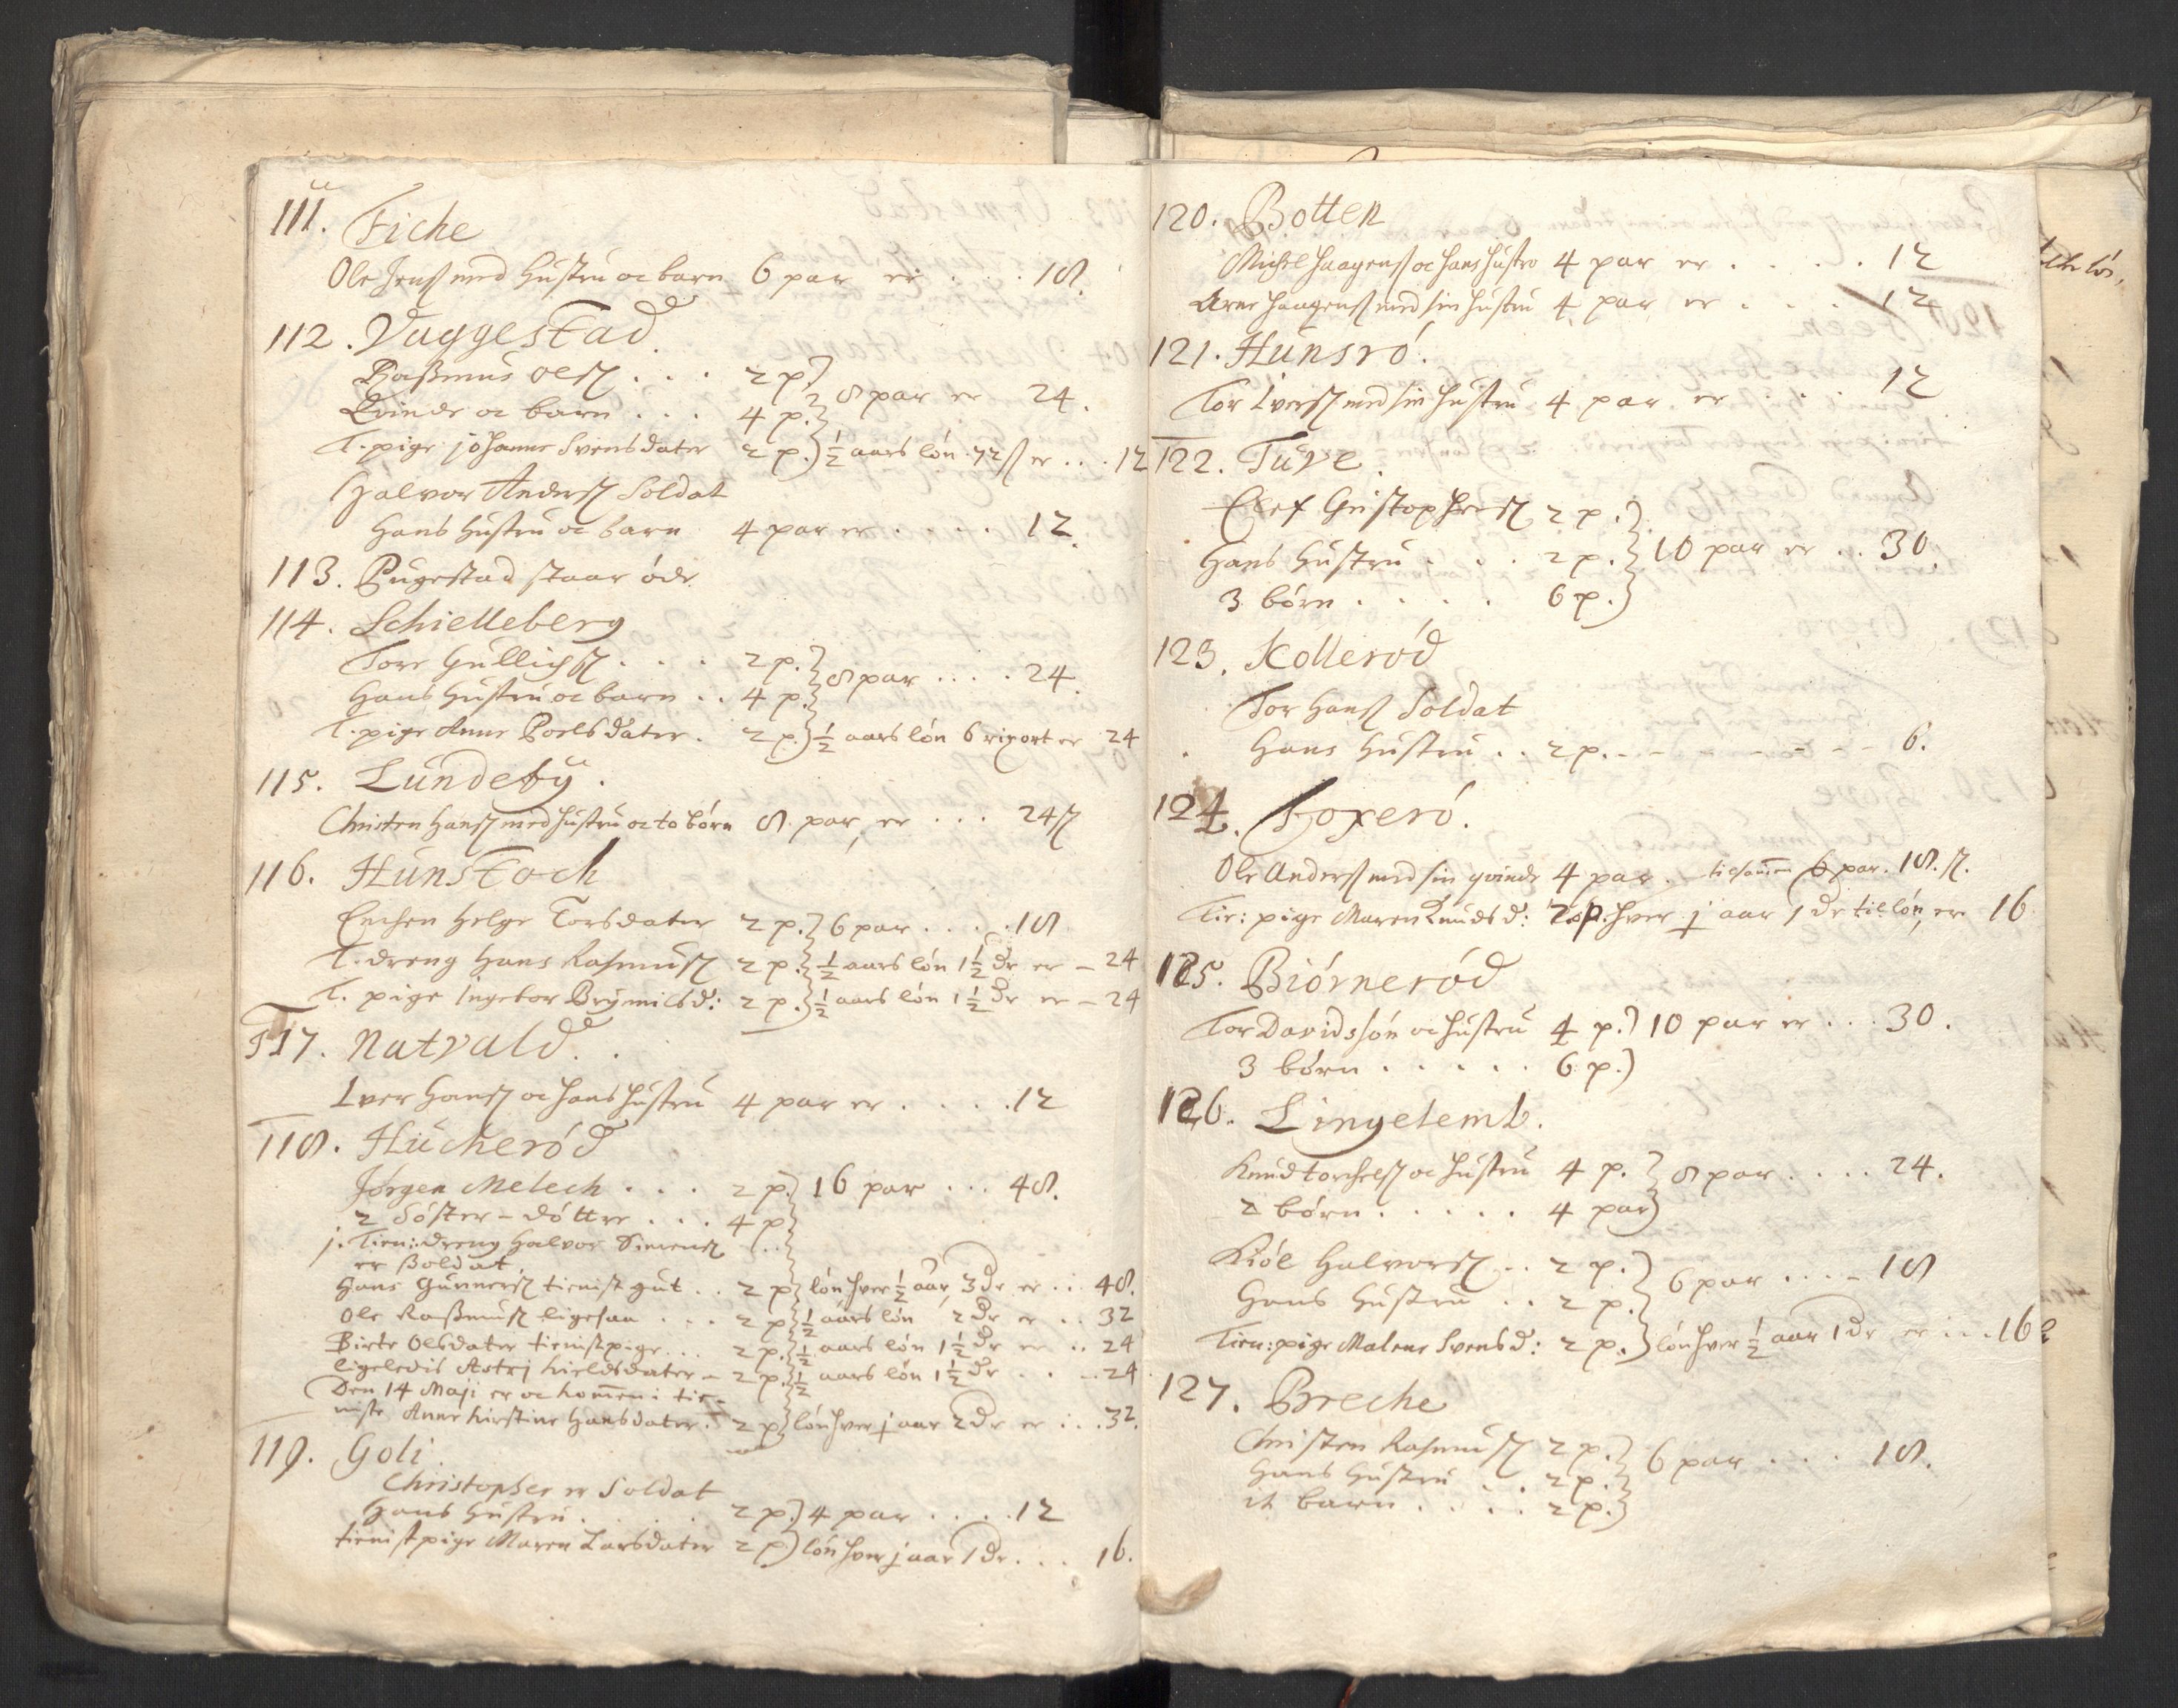 111. Fiche
Ole Jenß med hustru oc barn 6 par er . . . 18.
112. Vaggestad
Rasßmus Olß . . . 2 p. } 8 par er 24.
Qvinde oc barn . . . 4 p. }
T. pige Johanne Svensdater 2 p. } ½ aars lön 72 ß er . . . 12
Halvor Anderß Soldat
Hans hustru oc barn 4 par er . . . . 12.
113. Bugestad staar öde.
114. Schielleberg
Tore Gullichß . . . . 2 p. } 8 par . . . . 24.
Hans hustru oc barn . . 4 p. }
T. pige Anne Poelsdater . 2 p. } ½ aars lön 6 rixort er 24
115. Lundebÿ.
Christen Hanß med hustru oc to börn 8 par, er . . . 24 ß
116. Hunstoch
Enchen Helge Torsdater 2 p. } 6 par . . . . 18
T. dreng Hans Rasmusß 2 p. } ½ aars lön 1½ dr er – 24
T. pige Ingebor Brÿnilsd: 2 p. } ½ aars lön 1½ dr er – 24
117. Natvald . .
Iver Hanß oc hans hustru 4 par er . . . . . 12
118. Hucheröd
Jörgen Melech . . . 2 p. } 16 par . . . 48.
2 Söster-döttre . . . 4 p }
j. Tien: dreng Halvor Simenß . . .
er ßoldat
Hans Gunnerß tienist gut . . 2 p } lön hver ½ aar, 3 dr er . . . 48.
Ole Rasßmusß ligesaa . . . 2 p } ½ aars lön 2 dr er . . 32
Birte Olsdater tienistpige . . . 2 p. } ½ aars lön 1½ dr er . . 24
ligeledis Astrj Kieldsdater – 2 p. } ½ aars lön 1½ dr . . – 24
Den 14 Maji er oc kommen i tie-
niste Anne Kirstine Hansdater . 2 p } lön hver j aar 2 dr er . . . 32.
119. Goli.
Christopher er Soldat
Hans hustru . . . . . 2 p. } 4 par . . . . 12
tienistpige Maren Larsdater 2 p } lön hver j aar 1 dr . . . 16.
120. Botten
Michel Haagenß oc hans hustro 4 par er . . . . . 12
Arne Haagenß med sin hustru 4 par er . . . . 12
121. Hunsrö.
Tor Iverß med sin hustru 4 par er . . . . 12
122. Tuve.
Elef Christophersß 2 p. }
Hans hustru . . . . 2 p. } 10 par er . . 30.
3 börn . . . . . 6 p. }
123. Kolleröd
Tor Hanß Soldat
Hans hustru . . 2 p. – – – – – – – 6.
124. Foxerö.
Ole Anderß med sin qvinde 4 par . tilsammen 6 par . 18. ß.
Tie: pige Maren Knudsd: 2 p. hver j aar 1 dr til lön, er 16
125. Biörneröd
Tor Davidssön oc hustru 4 p. } 10 par er . . . 30.
3 börn . . . . . 6 p. }
126. Lingelemb.
Knud Torchelß oc hustru 4 p. } 8 par . . . . 24.
2 börn . . . . . 4 par }
Kiöl Halvorß . . 2 p. } 6 par . . . – 18
Hans hustru . . 2 p. }
Tien: pige Malene Svensd: 2 p. } lön hver ½ aar 1 dr er . . . 16
127. Breche
Christen Rasmusß 2 p. } 6 par . . . . 18.
Hans hustru . . . 2 p. }
it barn . . . . . 2 p. }